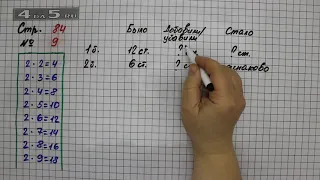 4 для 5.ru
Стр. 84
№ 9
2 · 2 = 4
2 · 3 = 6
2 · 4 = 8
2 · 5 = 10
2 · 6 = 12
2 · 7 = 14
2 · 8 = 16
2 · 9 = 18
Было Добавим/убавим Стало
1б. 12 ст. ? ? ст.
2б. 6 ст. ? с